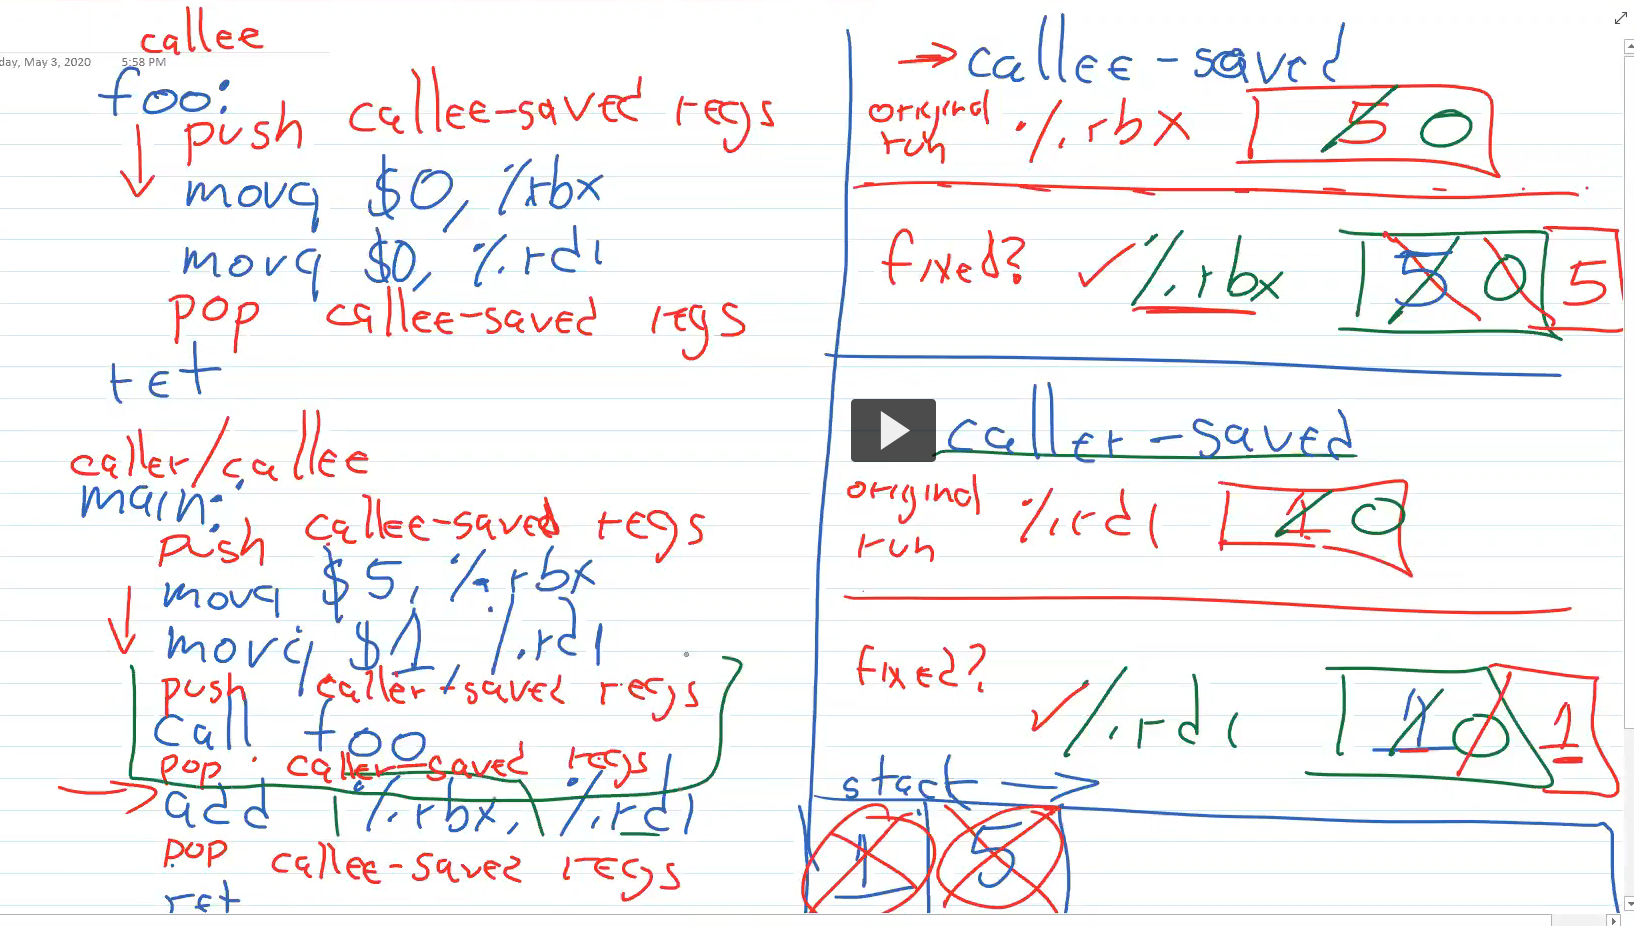 callee
day, May 3, 2020 5:58 PM
foo:
push callee-saved regs
movq $0, %rbx
movq $0, %.rdi
pop callee-saved regs
ret
caller/callee
main:
push callee-saved regs
movq $5, %.rbx
movq $1, %.rdi
push caller-saved regs
call foo
pop caller-saved regs
add %.rbx, %.rdi
pop callee-saved regs
ret
→ callee-saved
original run %.rbx 5 0
fixed? ✓ %.rbx 5 0 5
caller-saved
original run %.rdi 1 0
fixed? ✓ %.rdi 1 0 1
stack →
1 5